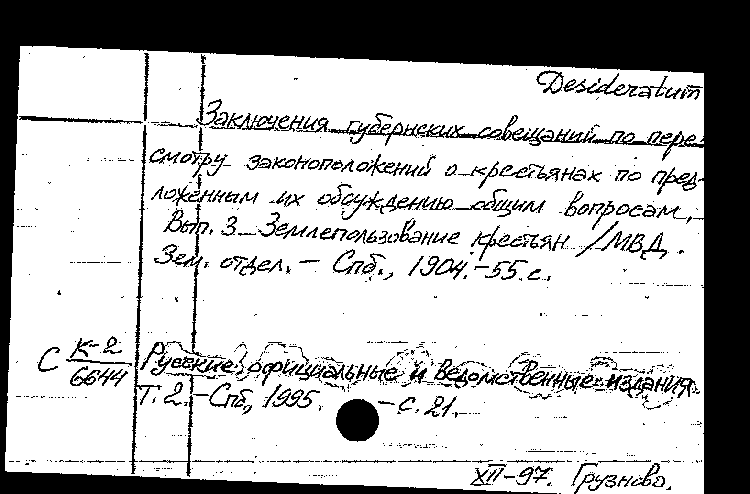 Desideratum
Заключения губернских совещаний по пере-
смотру законоположений о крестьянах по пред-
ложенным их обсуждению общим вопросам.
Вып. 3 Землепользование крестьян / МВД.
Зем. отдел. – Спб., 1904. – 55 с.
С К-2
6644
Русские официальные и ведомственные издания.
Т. 2. – Спб, 1995. – с. 21.
XII-97. Грузнова.